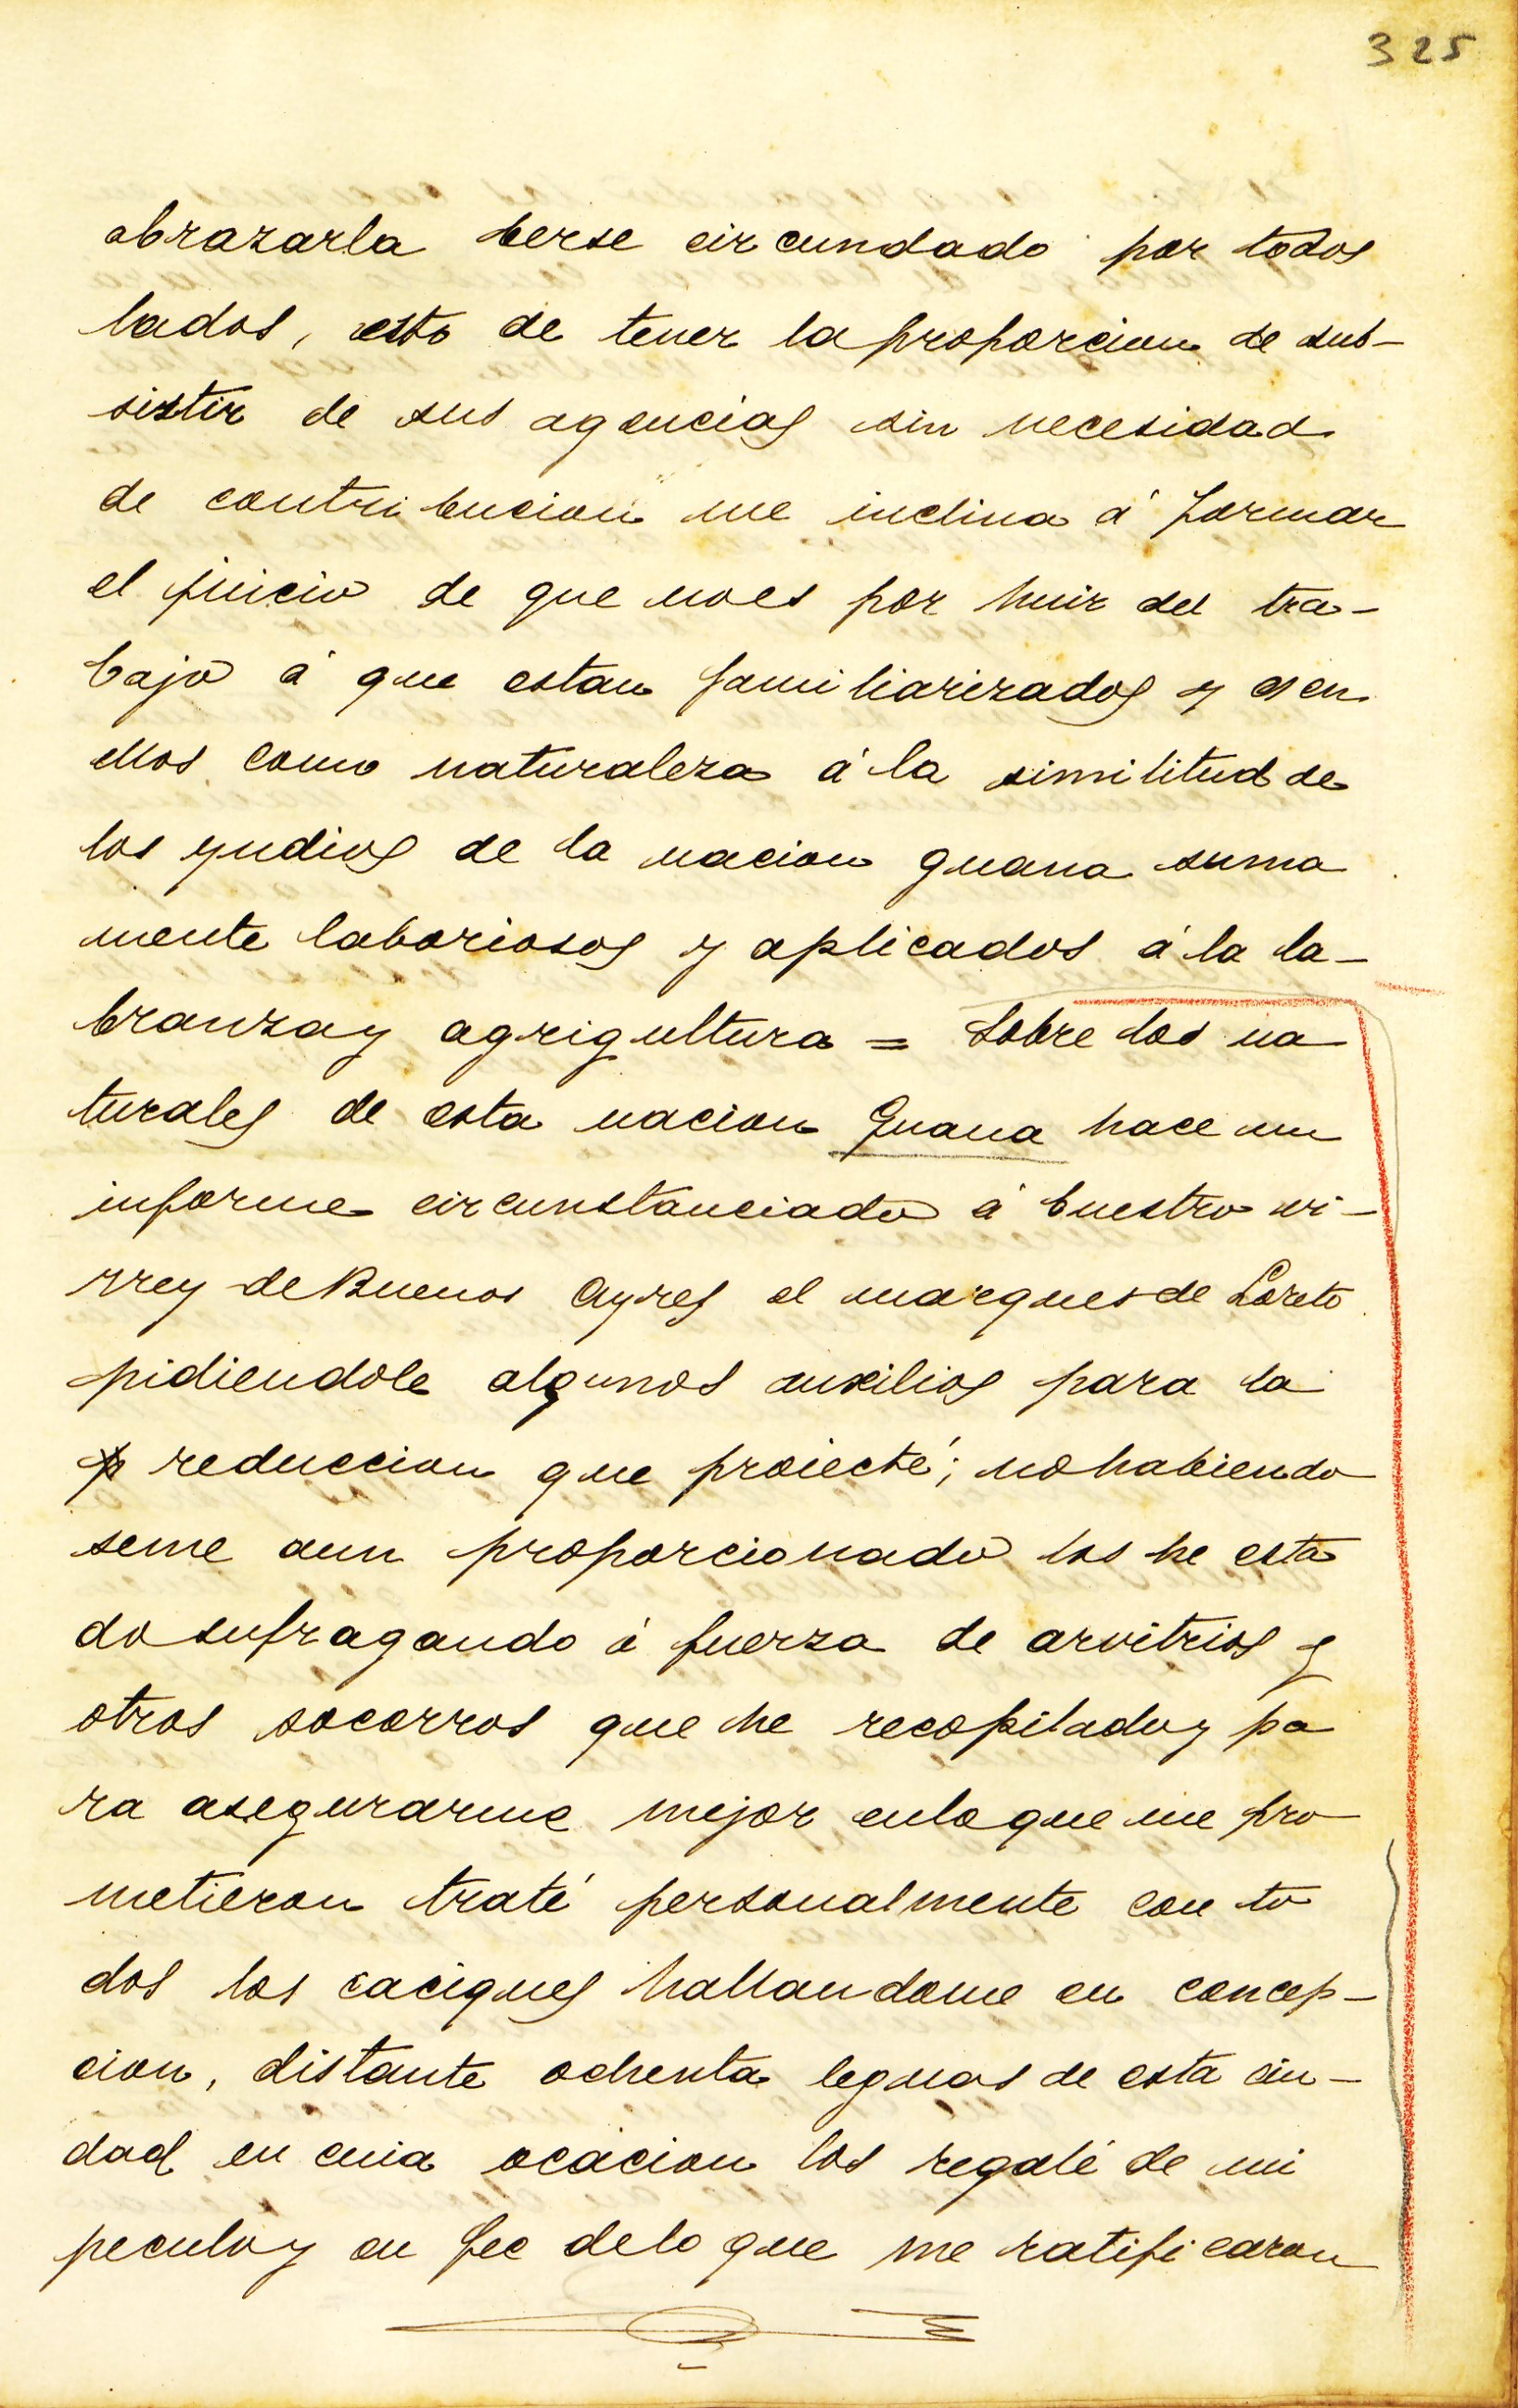 325
abrazarla berse circundado por todos
lados, esto de tener la proporcion de sub-
sistir de sus agencias sin necesidad
de contribucion me inclina á formar
el juicio de que no es por huir del tra-
bajo á que estan familiarizados y es en
ellos como naturaleza á la similitud de
los yndios de la nacion guana suma
mente laboriosos y aplicados á la la-
branza y agrigultura = Sobre los na
turales de esta nacion Guana hace un
informe circunstanciado á buestro vi-
rrey de Buenos Ayres el marques de Loreto
pidiendole algunos auxilios para la
reduccion que proiecté; no habiendo
seme aun proporcionado los he esta
do sufragando á fuerza de arvitrios y
otros socorros que he recopilado y pa
ra asegurarme mejor en lo que me pro
metieron traté personalmente con to
dos los caciques hallandome en concep-
cion, distante ochenta leguas de esta ciu-
dad en cuia ocacion los regalé de mi
peculo y en fee de lo que me ratificaron